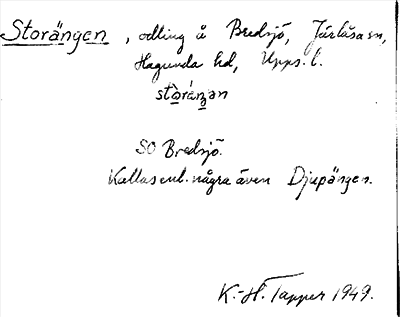 Storängen, odling å Bredsjö, Järlåsa sn,
Hagunda hd, Upps. l.
SO Bredsjö.
Kallas enl. några även Djupängen.
K.-H. Tapper 1949.